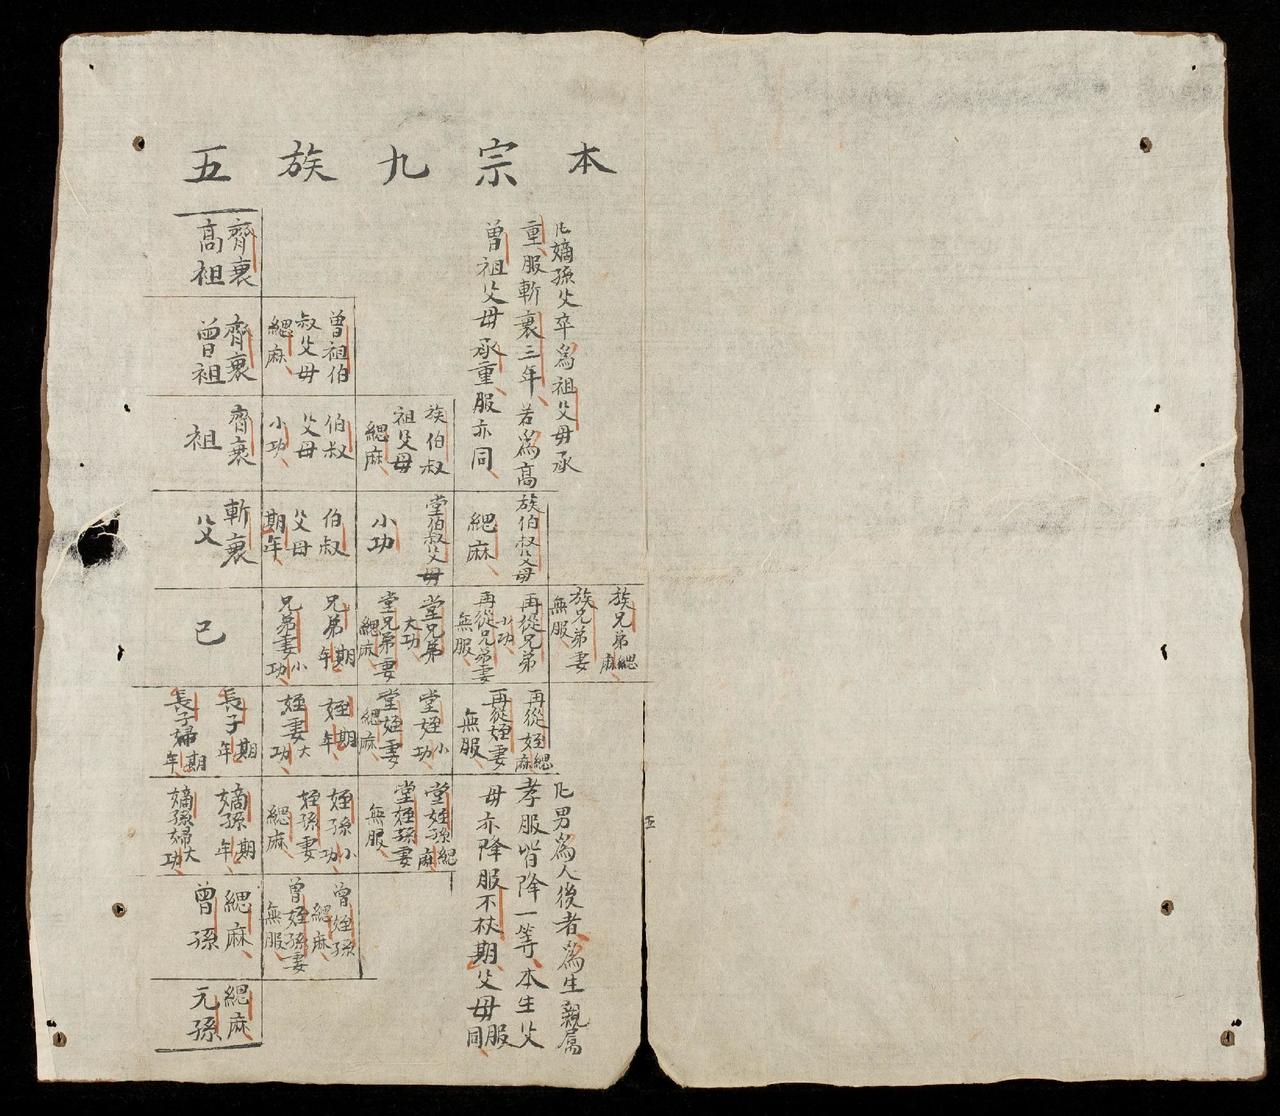 本宗九族五
凢嫡孫父卒爲祖父母承
重服斬衰三年若爲高
曾祖父母承重服亦同
齊衰
高祖
齊衰
曾祖
曾祖伯
叔父母
緦麻
齊衰
祖
伯叔
父母
小功
族伯叔
祖父母
緦麻
斬衰
父
伯叔
父母
期年
堂伯叔父母
小功
族伯叔父母
緦麻
己
兄弟期年
兄弟妻小功
堂兄弟
大功
堂兄弟妻
緦麻
再從兄弟
小功
再從兄弟妻
無服
族兄弟緦麻
族兄弟妻
無服
長子期年
長子婦期年
姪期年
姪妻大功
堂姪小功
堂姪妻
緦麻
再從姪緦麻
再從姪妻
無服
嫡孫期年
嫡孫婦大功
姪孫小功
姪孫妻
緦麻
堂姪孫緦麻
堂姪孫妻
無服
緦麻
曾孫
曾姪孫
緦麻
曾姪孫妻
無服
緦麻
元孫
凢男爲人後者爲生親属
孝服皆降一等本生父
母亦降服不杖期父母服同
五